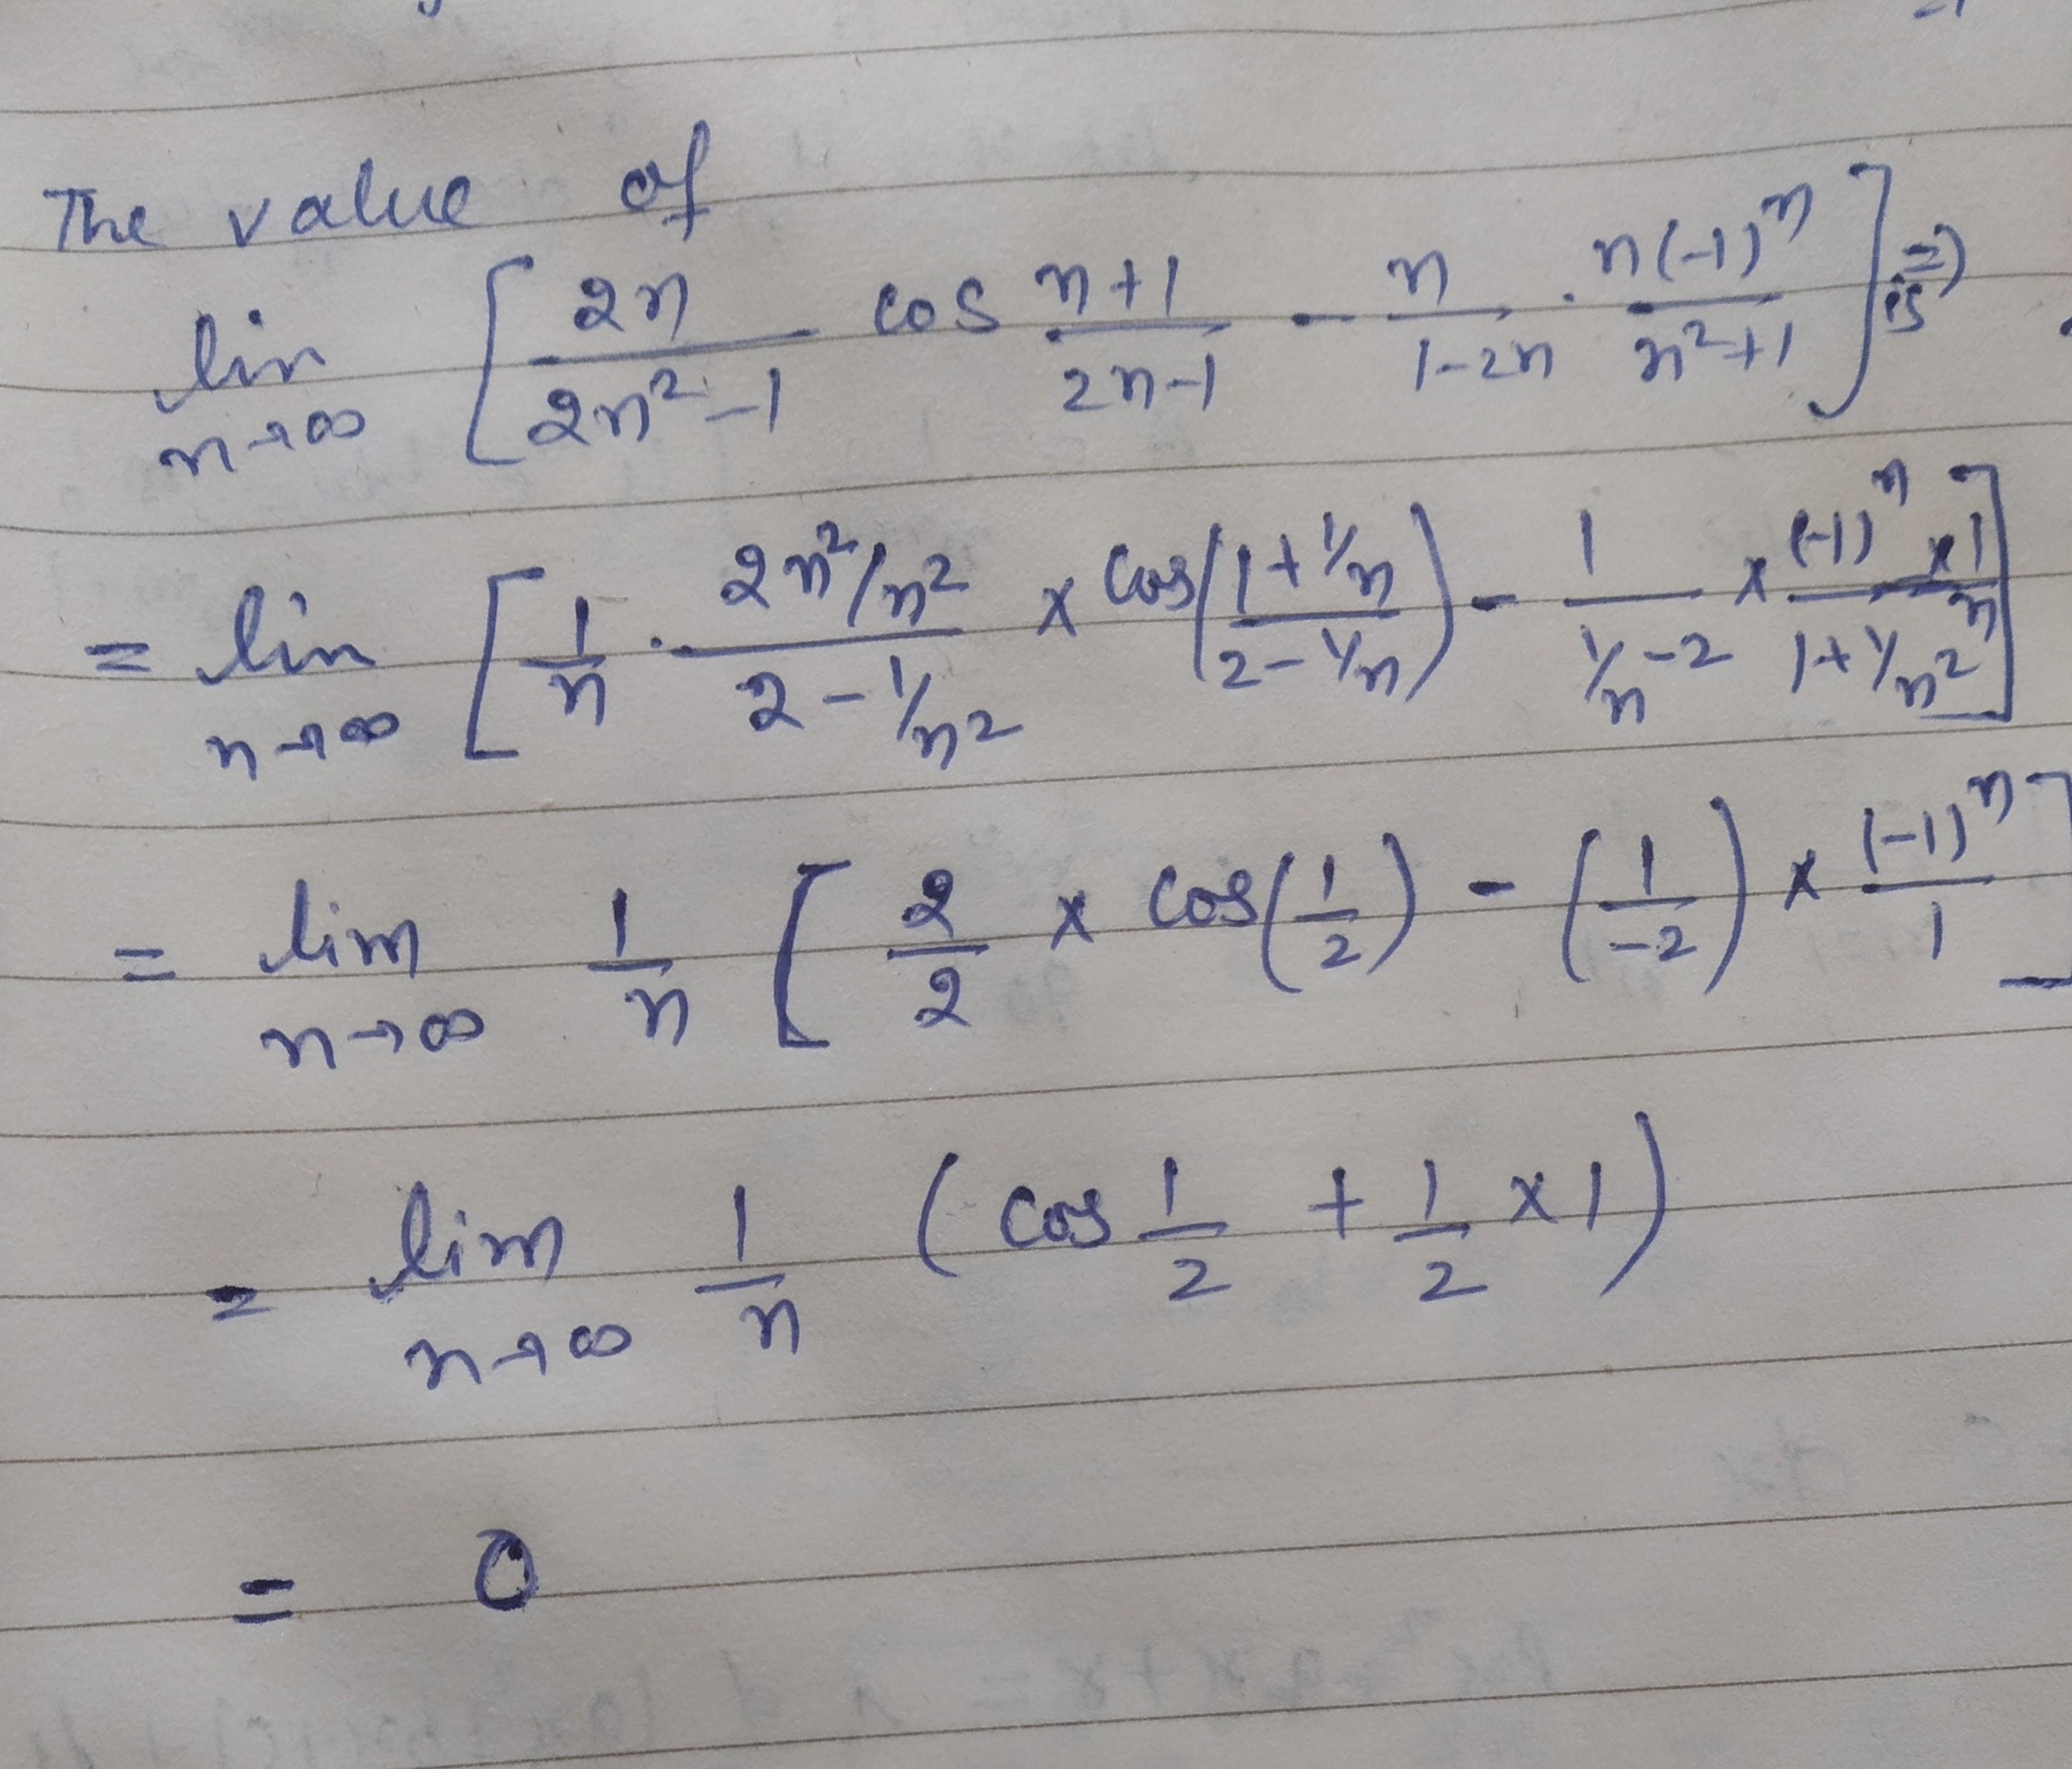 The value of
lim n→∞ [ 2n/(2n²-1) cos (n+1)/(2n-1) - n/(1-2n) · n(-1)ⁿ/(n²+1) ] is ⇒
= lim n→∞ [ 1/n · (2n²/n²)/(2-1/n²) × cos((1+1/n)/(2-1/n)) - 1/(1/n-2) × ((-1)ⁿ×1/n)/(1+1/n²) ]
= lim n→∞ 1/n [ 2/2 × cos(1/2) - (1/-2) × (-1)ⁿ/1 ]
= lim n→∞ 1/n ( cos 1/2 + 1/2 ×1 )
= 0